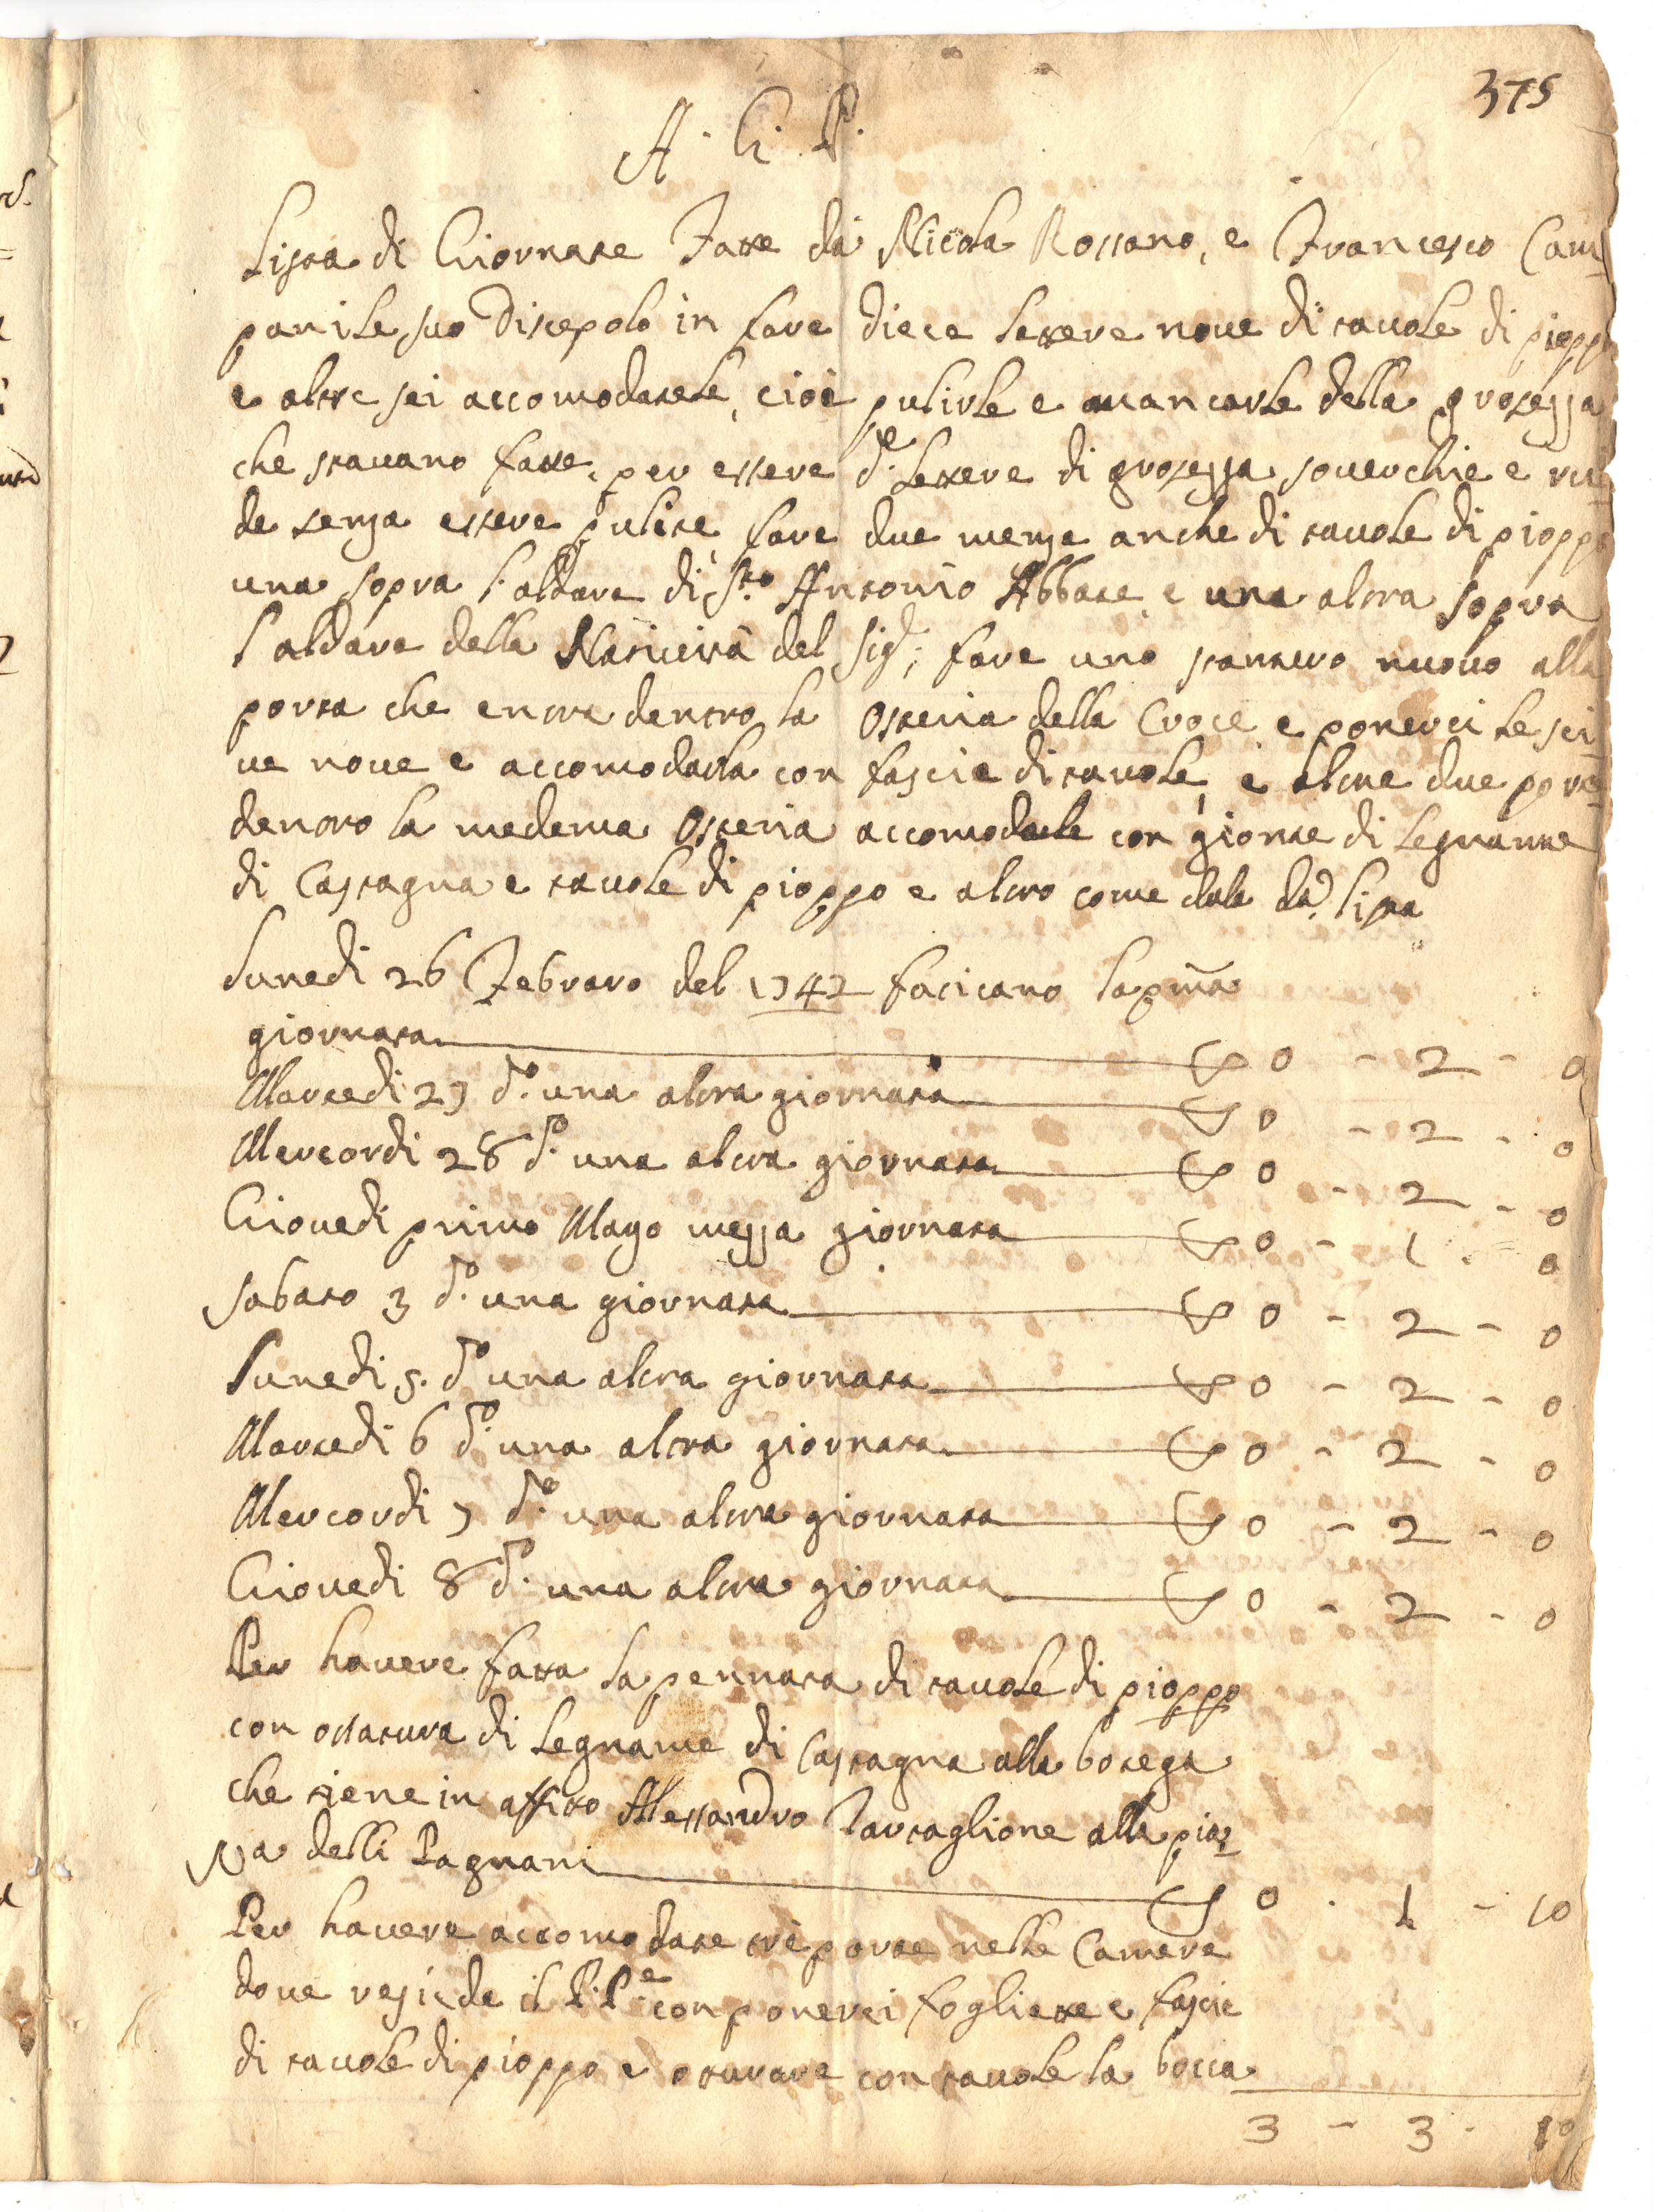 375
A. G. P.
Lista di Giornate Fatte da Nicola Rossano, e Francesco Cam=
panile suo Discepolo in fare diece lettere nove di tavole di pioppo
e altre sei accomodatele, cioè pulirle e mancarle della grosezza
che stavano fatte, per essere d.e lettere di grosezza soverchie e rui
de senza essere pulite, fare due menze anche di tavole di pioppo
una sopra l'aldare di S.to Antonio Abbate, e una altra sopra
l'aldare della Natività del Sig.r; fare uno stanturo nuovo alla
porta che entra dentro la Osteria della Croce e ponerci le sei
ue nove e accomodarla con fascie di tavole, e altre due porte
dentro la medema Osteria accomodarle con gionte di legnamme
di Castagna e tavole di pioppo e altro come dale da d.a lista
Lunedi 26 Febraro del 1742 facicano la pma
giornata 0 - 2 - 0
Martedi 27 d.o una altra giornata 0 - 2 - 0
Mercordi 28 d.o una altra giornata 0 - 2 - 0
Giovedi primo Mayo mezza giornata 0 - 1 - 0
Sabato 3 d.o una giornata 0 - 2 - 0
Lunedi 5. d.o una altra giornata 0 - 2 - 0
Martedi 6 d.o una altra giornata 0 - 2 - 0
Mercordi 7 d.o una altra giornata 0 - 2 - 0
Giovedi 8 d.o una altra giornata 0 - 2 - 0
Per havere fatta la pennata di tavole di pioppo
con ossatura di legname di Castagna alla botega
che tiene in affitto Alessandro Tartaglione alla piaz
za delli Pagnani 0 - 1 - 10
Per havere accomodate tre porte nelle Camere
dove resiede il P. P.e con ponerci fogliette e fascie
di tavole di pioppo e oturare con tavole la bocca
3 - 3 - 10